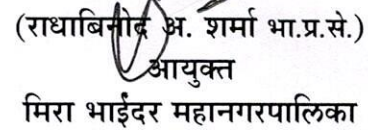 (राधाबिनोद अ. शर्मा भा.प्र.से.)
आयुक्त
मिरा भाईंदर महानगरपालिका